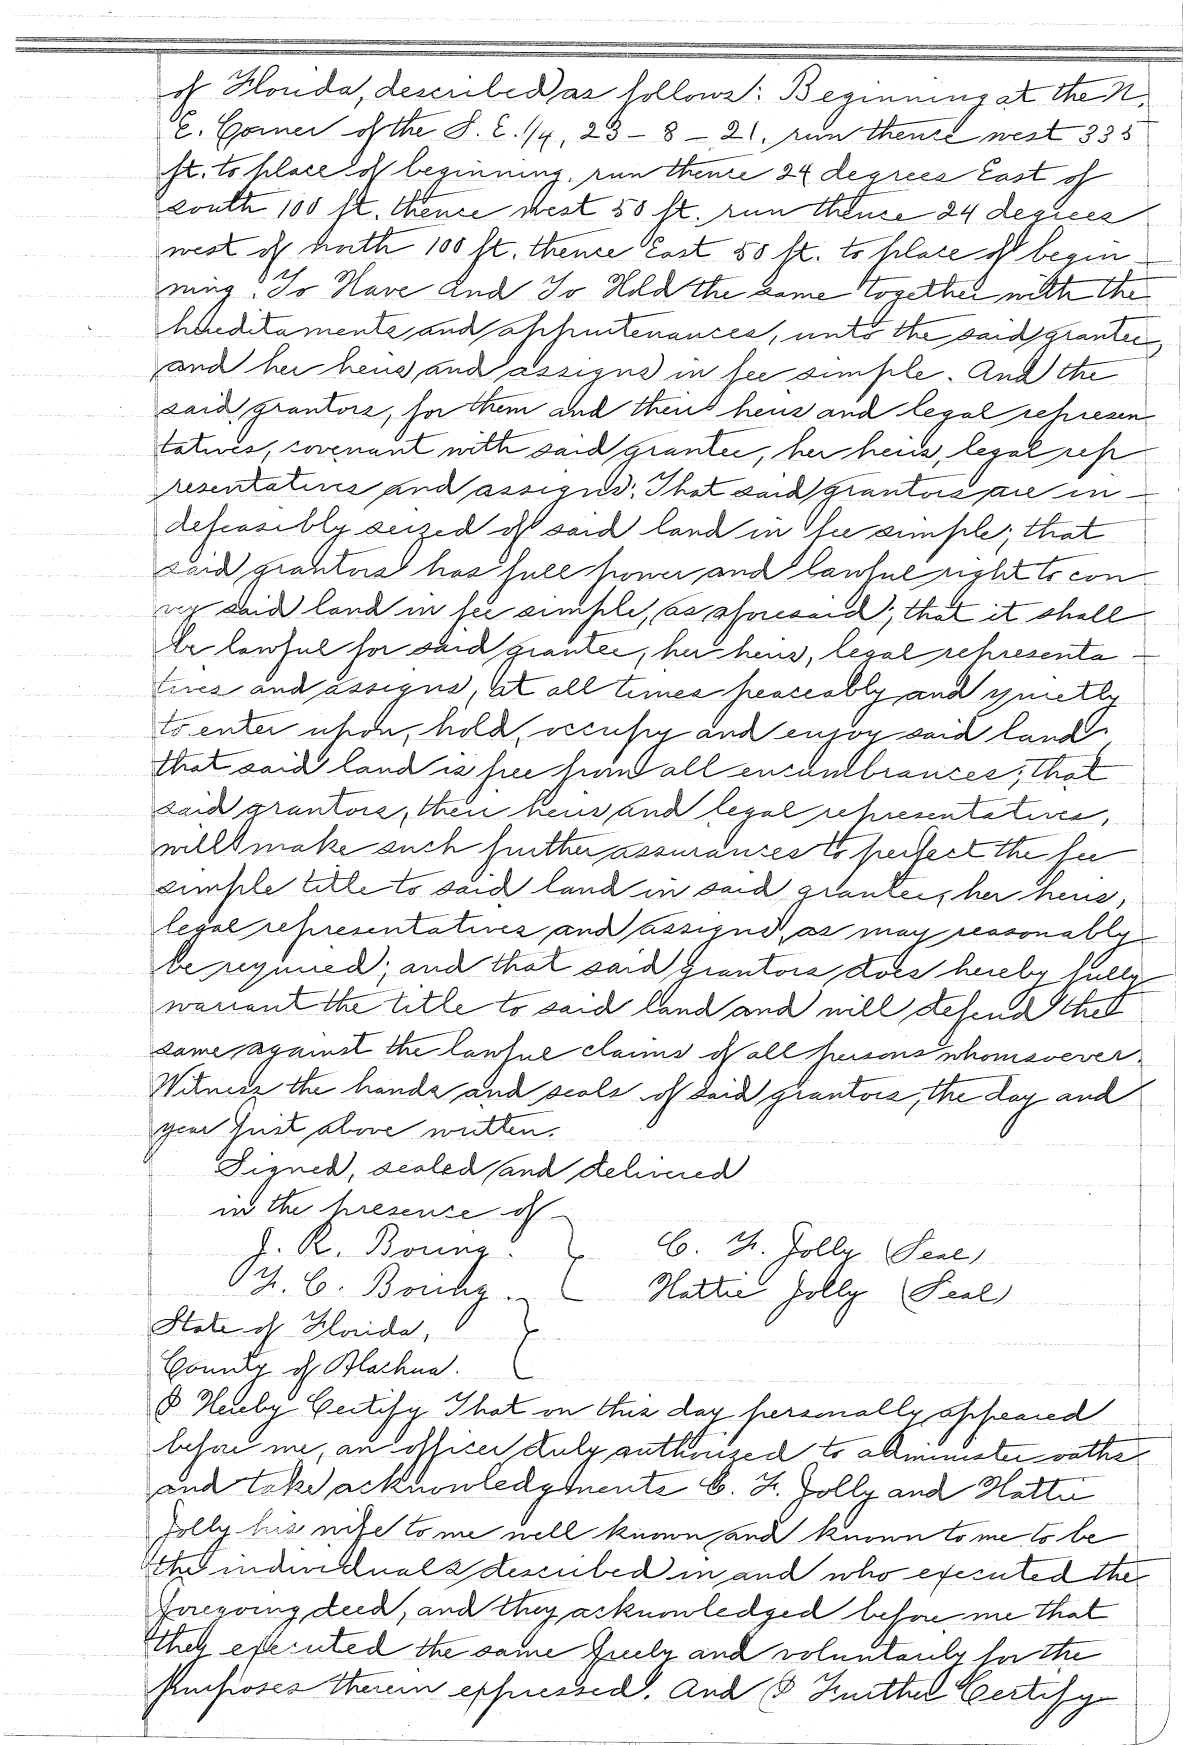 of Florida, described as follows: Beginning at the N.
E. Corner of the S. E. 1/4, 23 - 8 - 21, run thence west 335
ft. to place of beginning, run thence 24 degrees East of
south 100 ft. thence west 50 ft. run thence 24 degrees
west of north 100 ft. thence East 50 ft. to place of begin -
ning. To Have and To Hold the same together with the
hereditaments and appurtenances, unto the said grantee,
and her heirs and assigns in fee simple. And the
said grantors, for them and their heirs and legal represen
tatives, covenant with said grantee, her heirs, legal rep
resentatives and assigns: That said grantors are in -
defeasibly seized of said land in fee simple; that
said grantors has full power and lawful right to con
vey said land in fee simple, as aforesaid; that it shall
be lawful for said grantee, her heirs, legal representa -
tives and assigns, at all times peaceably and quietly
to enter upon, hold, occupy and enjoy said land;
that said land is free from all encumbrances; that
said grantors, their heirs and legal representatives,
will make such further assurances to perfect the fee
simple title to said land in said grantee, her heirs,
legal representatives and assigns, as may reasonably
be required; and that said grantors does hereby fully
warrant the title to said land and will defend the
same against the lawful claims of all persons whomsoever.
Witness the hands and seals of said grantors, the day and
year first above written.
Signed, sealed and delivered
in the presence of
J. R. Boring. C. F. Jolly (Seal)
F. C. Boring. Hattie Jolly (Seal)
State of Florida,
County of Alachua.
I Hereby Certify That on this day personally appeared
before me, an officer duly authorized to administer oaths
and take acknowledgments C. F. Jolly and Hattie
Jolly his wife to me well known and known to me to be
the individuals described in and who executed the
foregoing deed, and they acknowledged before me that
they executed the same freely and voluntarily for the
purposes therein expressed. And I Further Certify